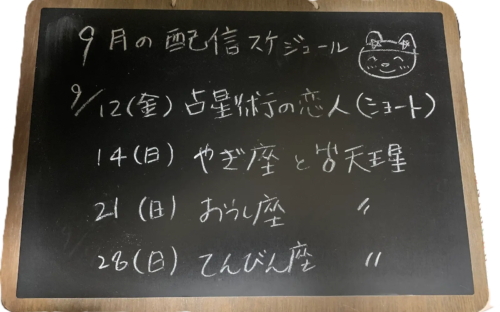 9月の配信スケジュール
9/12(金) 占星術の恋人(ショート)
14(日) やぎ座と皆天王星
21(日) おうし座 〃
28(日) てんびん座 〃